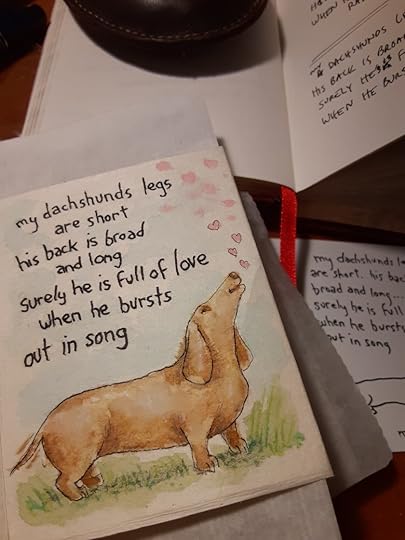 my dachshunds legs
are short
his back is broad
and long
surely he is full of love
when he bursts
out in song
WHEN H
DACHSHUNDS
HIS BACK IS BROA
SURELY HE
WHEN HE BURS
my dachshunds le
are short. his bac
broad and long...
surely he is full
when he bursts
out in song